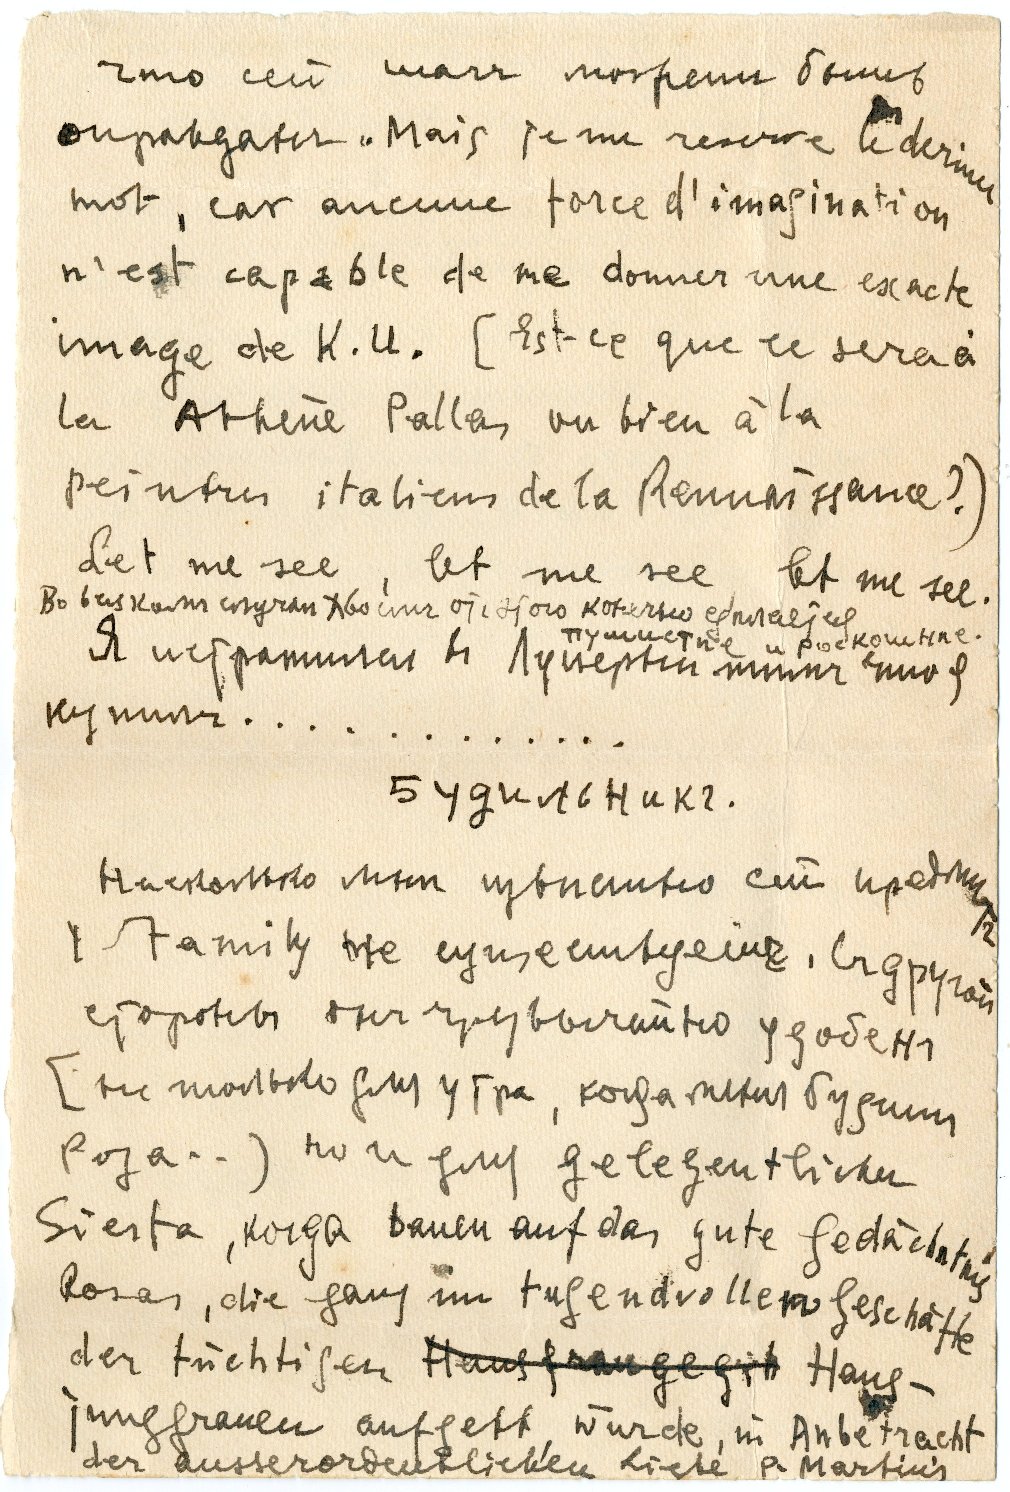 что сей шагъ
оправдаетъ. Mais je me reserve le dernier
mot, car aucune force d'imagination
n'est capable de me donner une exacte
image de K.U. [Est-ce que ce sera à
la Athène Pallas ou bien à la
peintres italiens de la Rennaissance?)
Let me see, let me see let me see.
Во всякомъ случаѣ от этого конечно
пушистѣе и роскошнѣе.
Я истратился въ Луцернѣ
купилъ..............
Будильникъ.
Насколько мнѣ извѣстно сей предметъ
Family не существуетъ, съ другой
стороны онъ чрезвычайно удобенъ
[не только для утра, когда меня будитъ
Роза..) но и для gelegentlichen
Siesta, когда bauen auf das gute Gedächtnis
Rosas, die ganz im tugendvollen Geschäfte
der tüchtigen Hausfrau Haus-
jungfrauen aufgeht würde, in Anbetracht
der ausserordentlichen Liebe p. Martinis